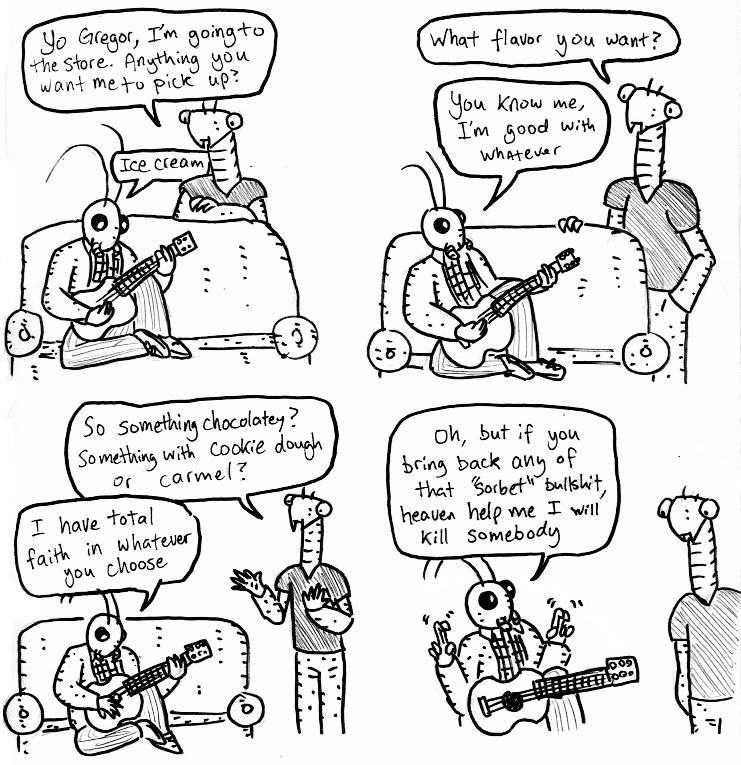 Yo Gregor, I'm going to
the store. Anything you
want me to pick up?
Ice cream
What flavor you want?
You know me,
I'm good with
whatever
So something chocolatey?
Something with cookie dough
or carmel?
I have total
faith in whatever
you choose
Oh, but if you
bring back any of
that "sorbet" bullshit,
heaven help me I will
kill somebody